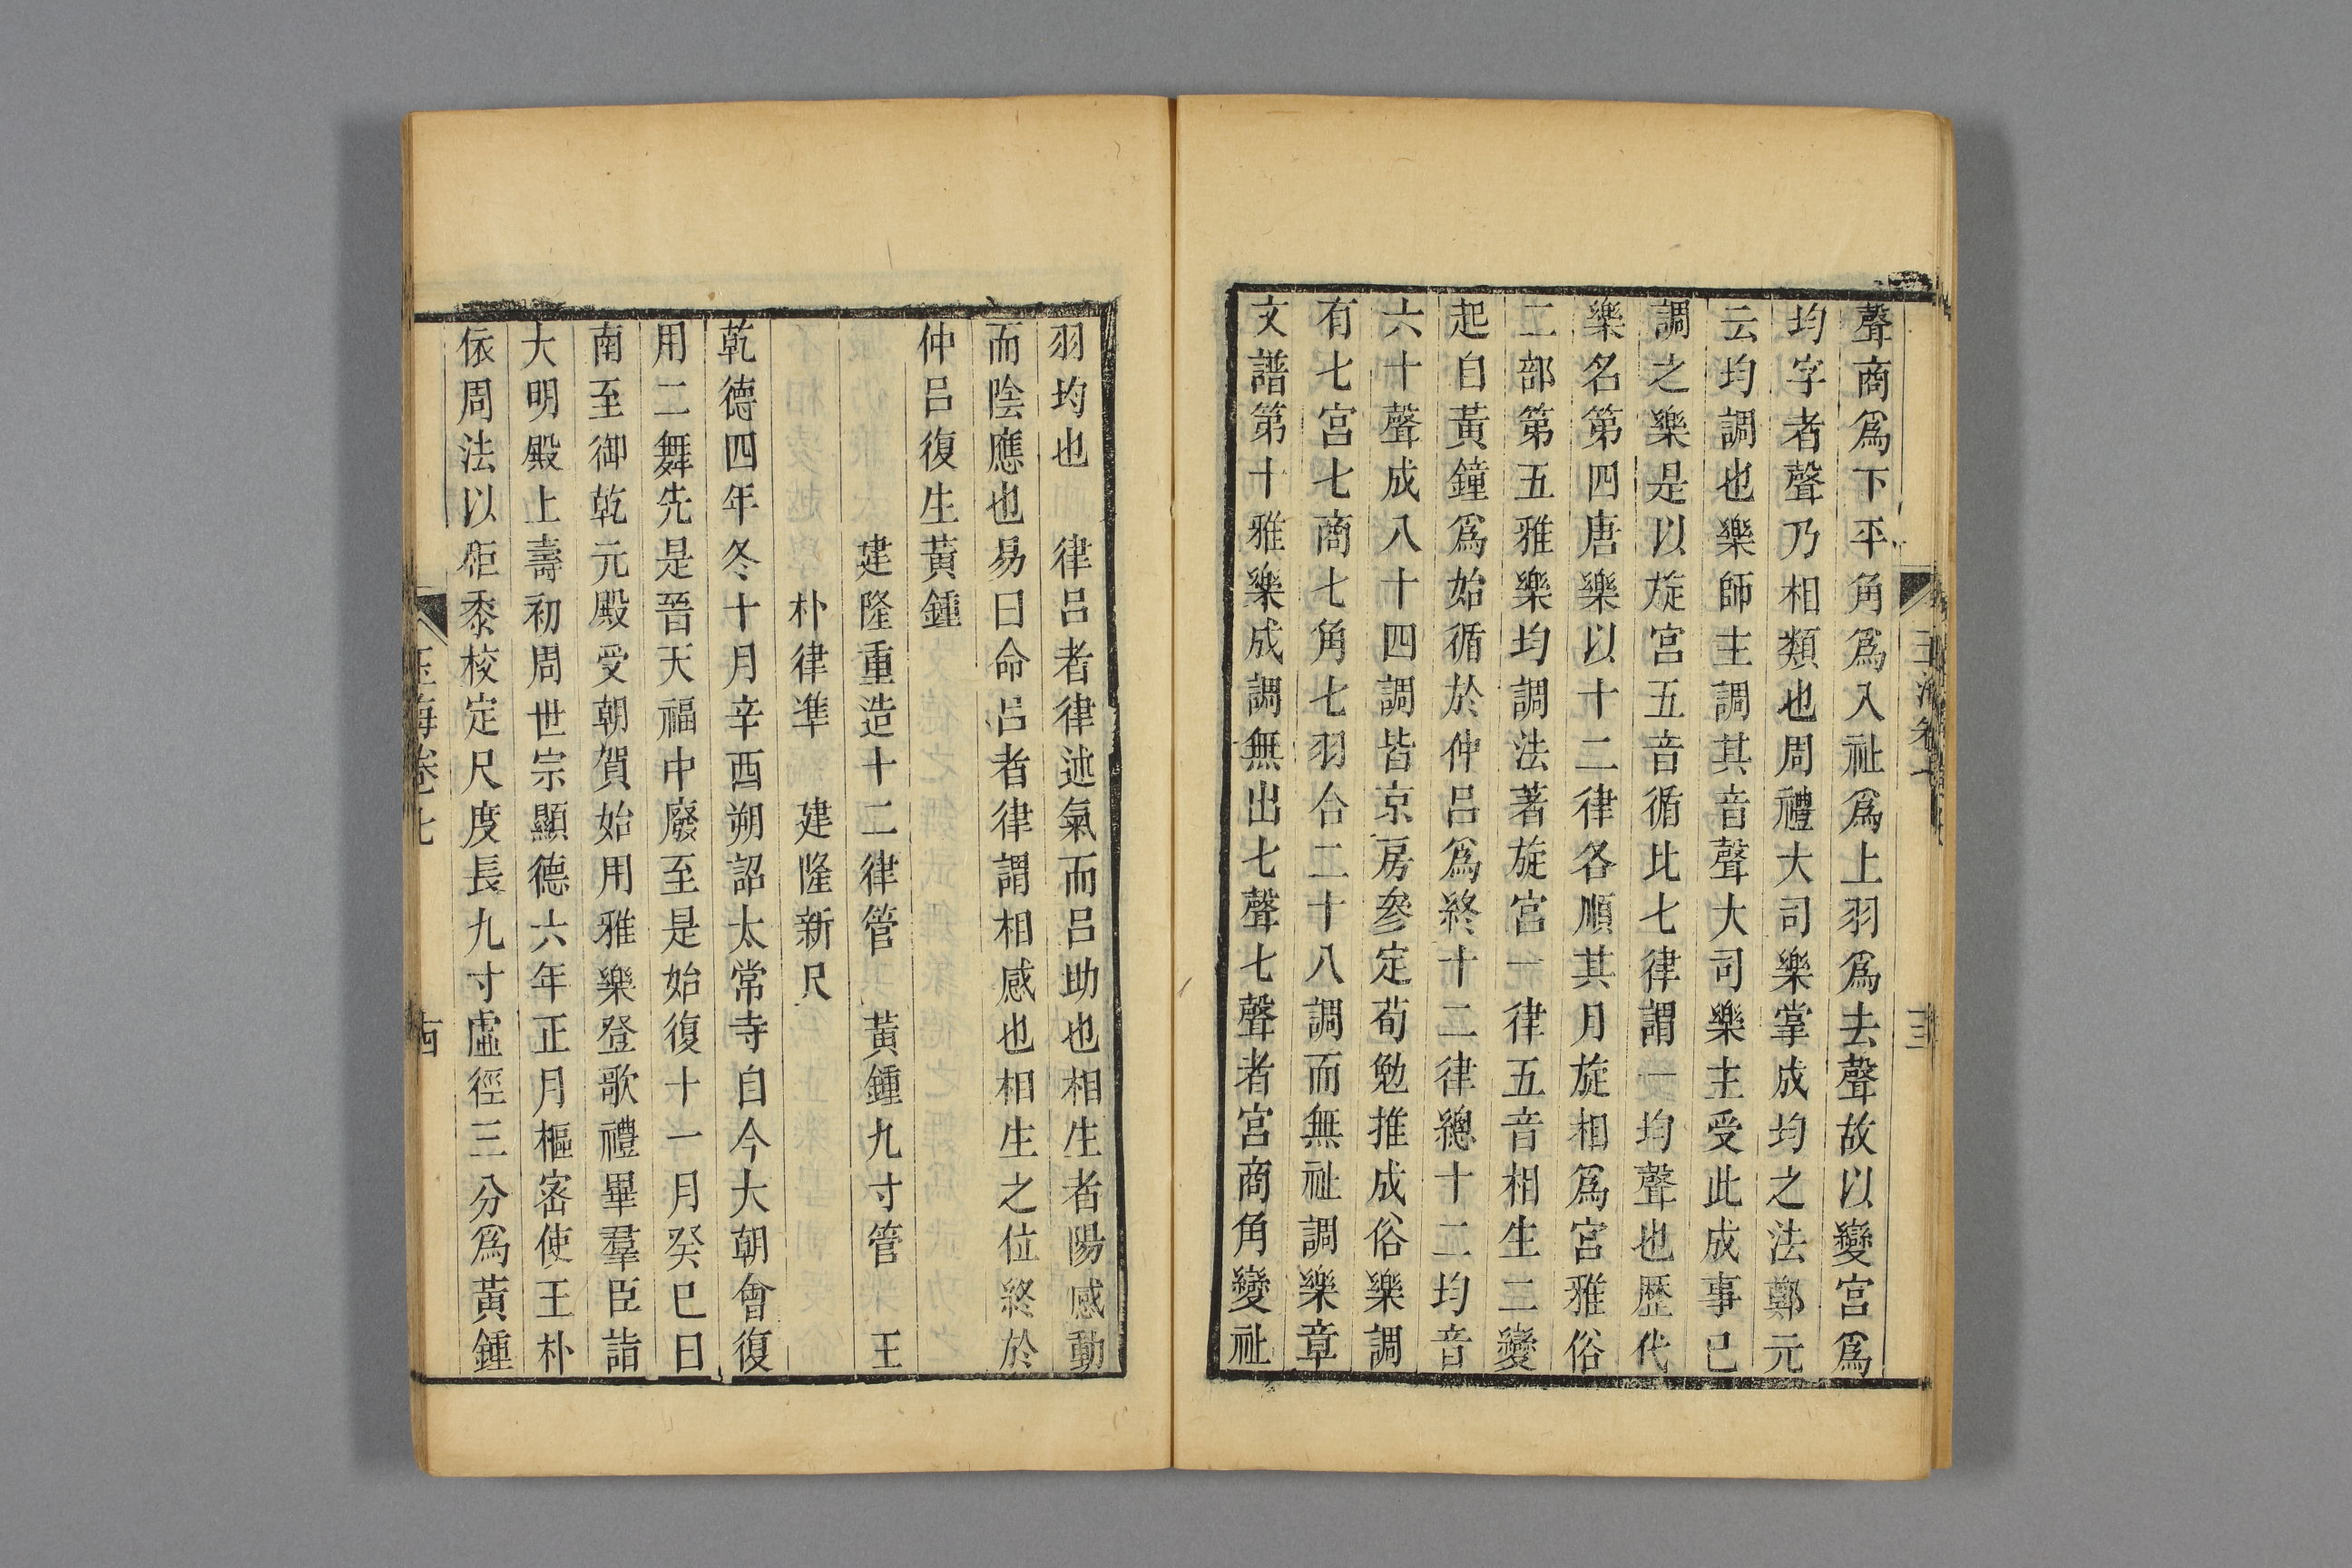 聲商爲下平角爲入祉爲上羽爲去聲故以變宮爲
均字者聲乃相類也周禮大司樂掌成均之法鄭元
云均調也樂師主調其音聲大司樂主受此成事已
調之樂是以旋宮五音循比七律謂一均聲也歷代
樂名第四唐樂以十二律各順其月旋相爲宮雅俗
二部第五雅樂均調法著旋宮一律五音相生二變
起自黃鐘爲始循於仲呂爲終十二律總十二均音
六十聲成八十四調皆京房參定荀勉推成俗樂調
有七宮七商七角七羽合二十八調而無祉調樂章
文譜第十雅樂成調無出七聲七聲者宮商角變祉
羽均也 律呂者律述氣而呂助也相生者陽感動
而陰應也易曰命呂者律謂相感也相生之位終於
仲呂復生黃鍾
建隆重造十二律管 黃鍾九寸管 王
朴律準 建隆新尺
乾德四年冬十月辛酉朔詔太常寺自今大朝會復
用二舞先是晉天福中廢至是始復十一月癸巳日
南至御乾元殿受朝賀始用雅樂登歌禮畢羣臣詣
大明殿上壽初周世宗顯德六年正月樞密使王朴
依周法以秬黍校定尺度長九寸虛徑三分爲黃鍾
玉海卷七